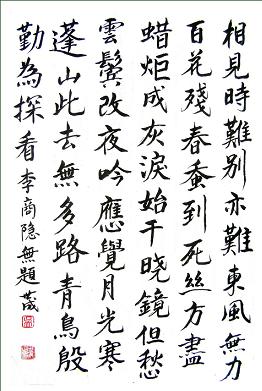 相見時難別亦難東風無力
百花殘春蚕到死絲方盡
蜡炬成灰淚始干晓鏡但愁
雲鬢改夜吟應覺月光寒
蓬山此去無多路青鳥殷
勤為探看李商隐無題